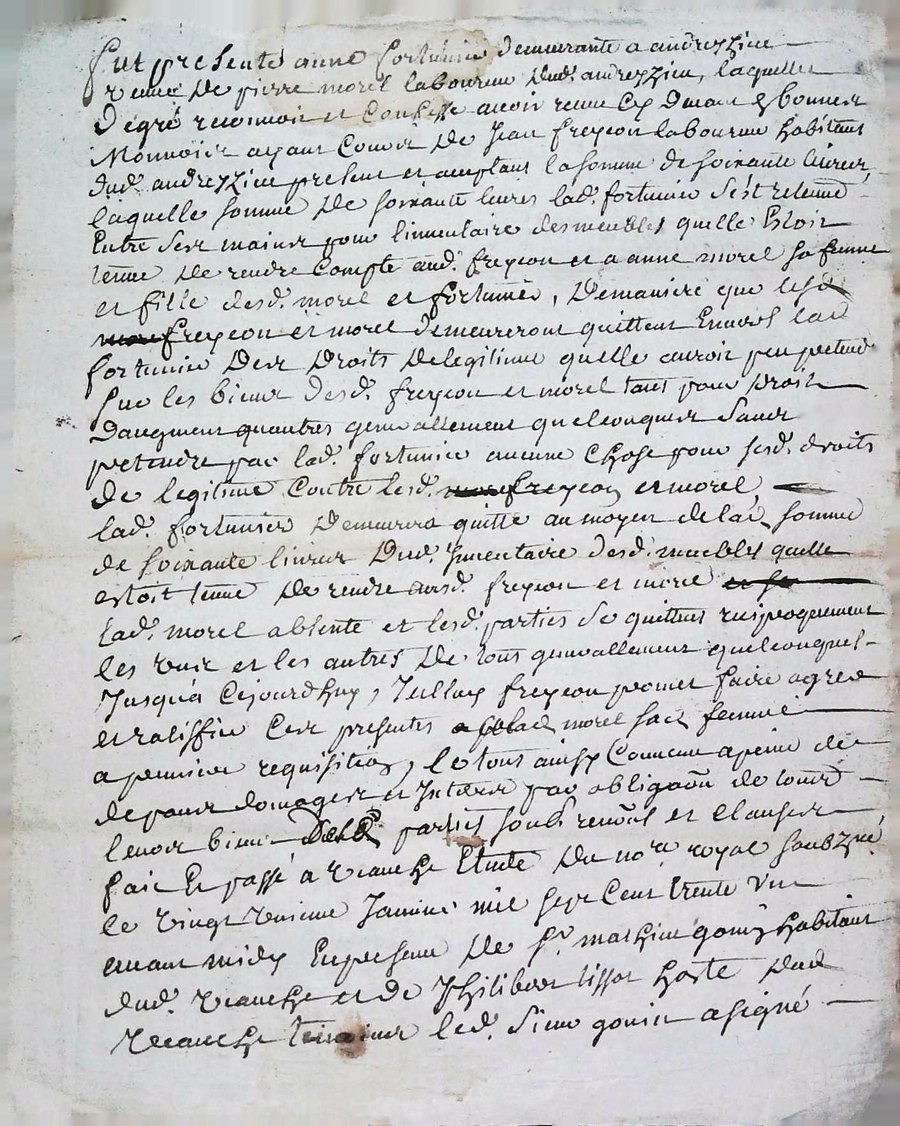 fut presente anne fortunier demeurante a andrezzieu
veuve de pierre morel laboureur dud. andrezzieu, laquelle
de gré reconnoit et confesse avoir receu cy devant en bonnes
Monnoies ayant cours de Jean freycon laboureur habitant
dud. andrezzieu present et aceptant la somme de soixante livres,
laquelle somme de soixante livres lad. fortunier s'est retenue
Entre ses mains pour linventaire des meubles quelle Estoit
tenue de rendre compte aud. freycon et a anne morel sa femme
et fille desd. morel et fortunier, Demaniere que lesd
freycon et morel demeureront quittent Envers lad
fortunier des Droits de legitime quelle auroit peu pretend
sur les biens desd. freycon et morel tant pour droit
daugment quautres generallement quelconques sans
pretendre par lad. fortunier aucune chose pour sesd. droits
de legitime contre lesd. freycon et morel,
lad. fortunier Demeurera quitte au moyen de lad. somme
de soixante livres Dud. Inventaire desd. meubles quelle
estoit tenue de rendre ausd. freycon et morel
lad. morel absente et lesd. parties se quittent resproquement
les uns et les autres de tous generallement quelconques
Jusqua cejourdhuy, Icelluy freycon promet faire agreer
et ratiffier ces presentes a lad morel sad femme
a premiere requisition, le tous ainsy Comme a peine de
de pans domages et Interes par obligaon de tous
leurs biens Desd parties soubs renons et clauses
fait Et passé a veauche Etude du nore royal soubzné
le vingt unieme Janvier mil sept cent trente un
avant midy En presence de sr. mathieu gonin habitant
dud. veauche et de philibert tissot hoste dud
veauche temoins led. sieur gonin a signé